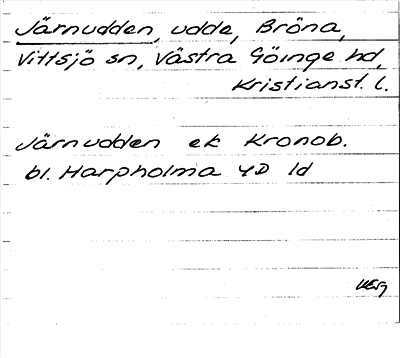 Järnudden, udde, Bröna,
Vittsjö sn, Västra Göinge hd,
Kristianst. l.
Järnudden ek Kronob.
bl. Harpholma 4D 1d